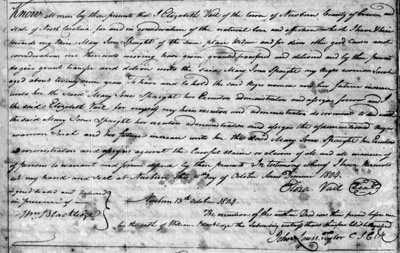 Know all men by these presents that I Elizabeth Vail of the town of Newbern County of Craven and
State of North Carolina for and in consideration of the natural love and affection which I have & bear
towards my Mary Jones Spaight of the same place and for divers other good causes and
considerations me hereunto moving have given granted transferred and delivered and by these presents
do give grant transfer and deliver unto the said Mary Jones Spaight my Negro woman Sarah
aged about twenty years to have and to hold the said Negro woman and her future increase
unto her the said Mary Jones Spaight her Executors administrators and assigns forever and I
the said Elizabeth Vail for myself my heirs executors and administrators do covenant to and with
the said Mary Jones Spaight her executors administrators and assigns the aforementioned Negro
woman Sarah and her future increase unto her the said Mary Jones Spaight her Executors
administrators and assigns against the lawful claims of all and all manner
of persons to warrant and forever defend by these presents In testimony whereof I have hereunto
set my hand and seal at Newbern this day of October Anno Domini 1804.
Eliza Vail (Seal)
Signed sealed and delivered
in presence of
Wm Blackledge
Newbern 13th October 1804.
The execution of the within Deed was then proved before me
by the oath of William Blackledge the subscribing witness thereto let it be registered
John Louis Taylor